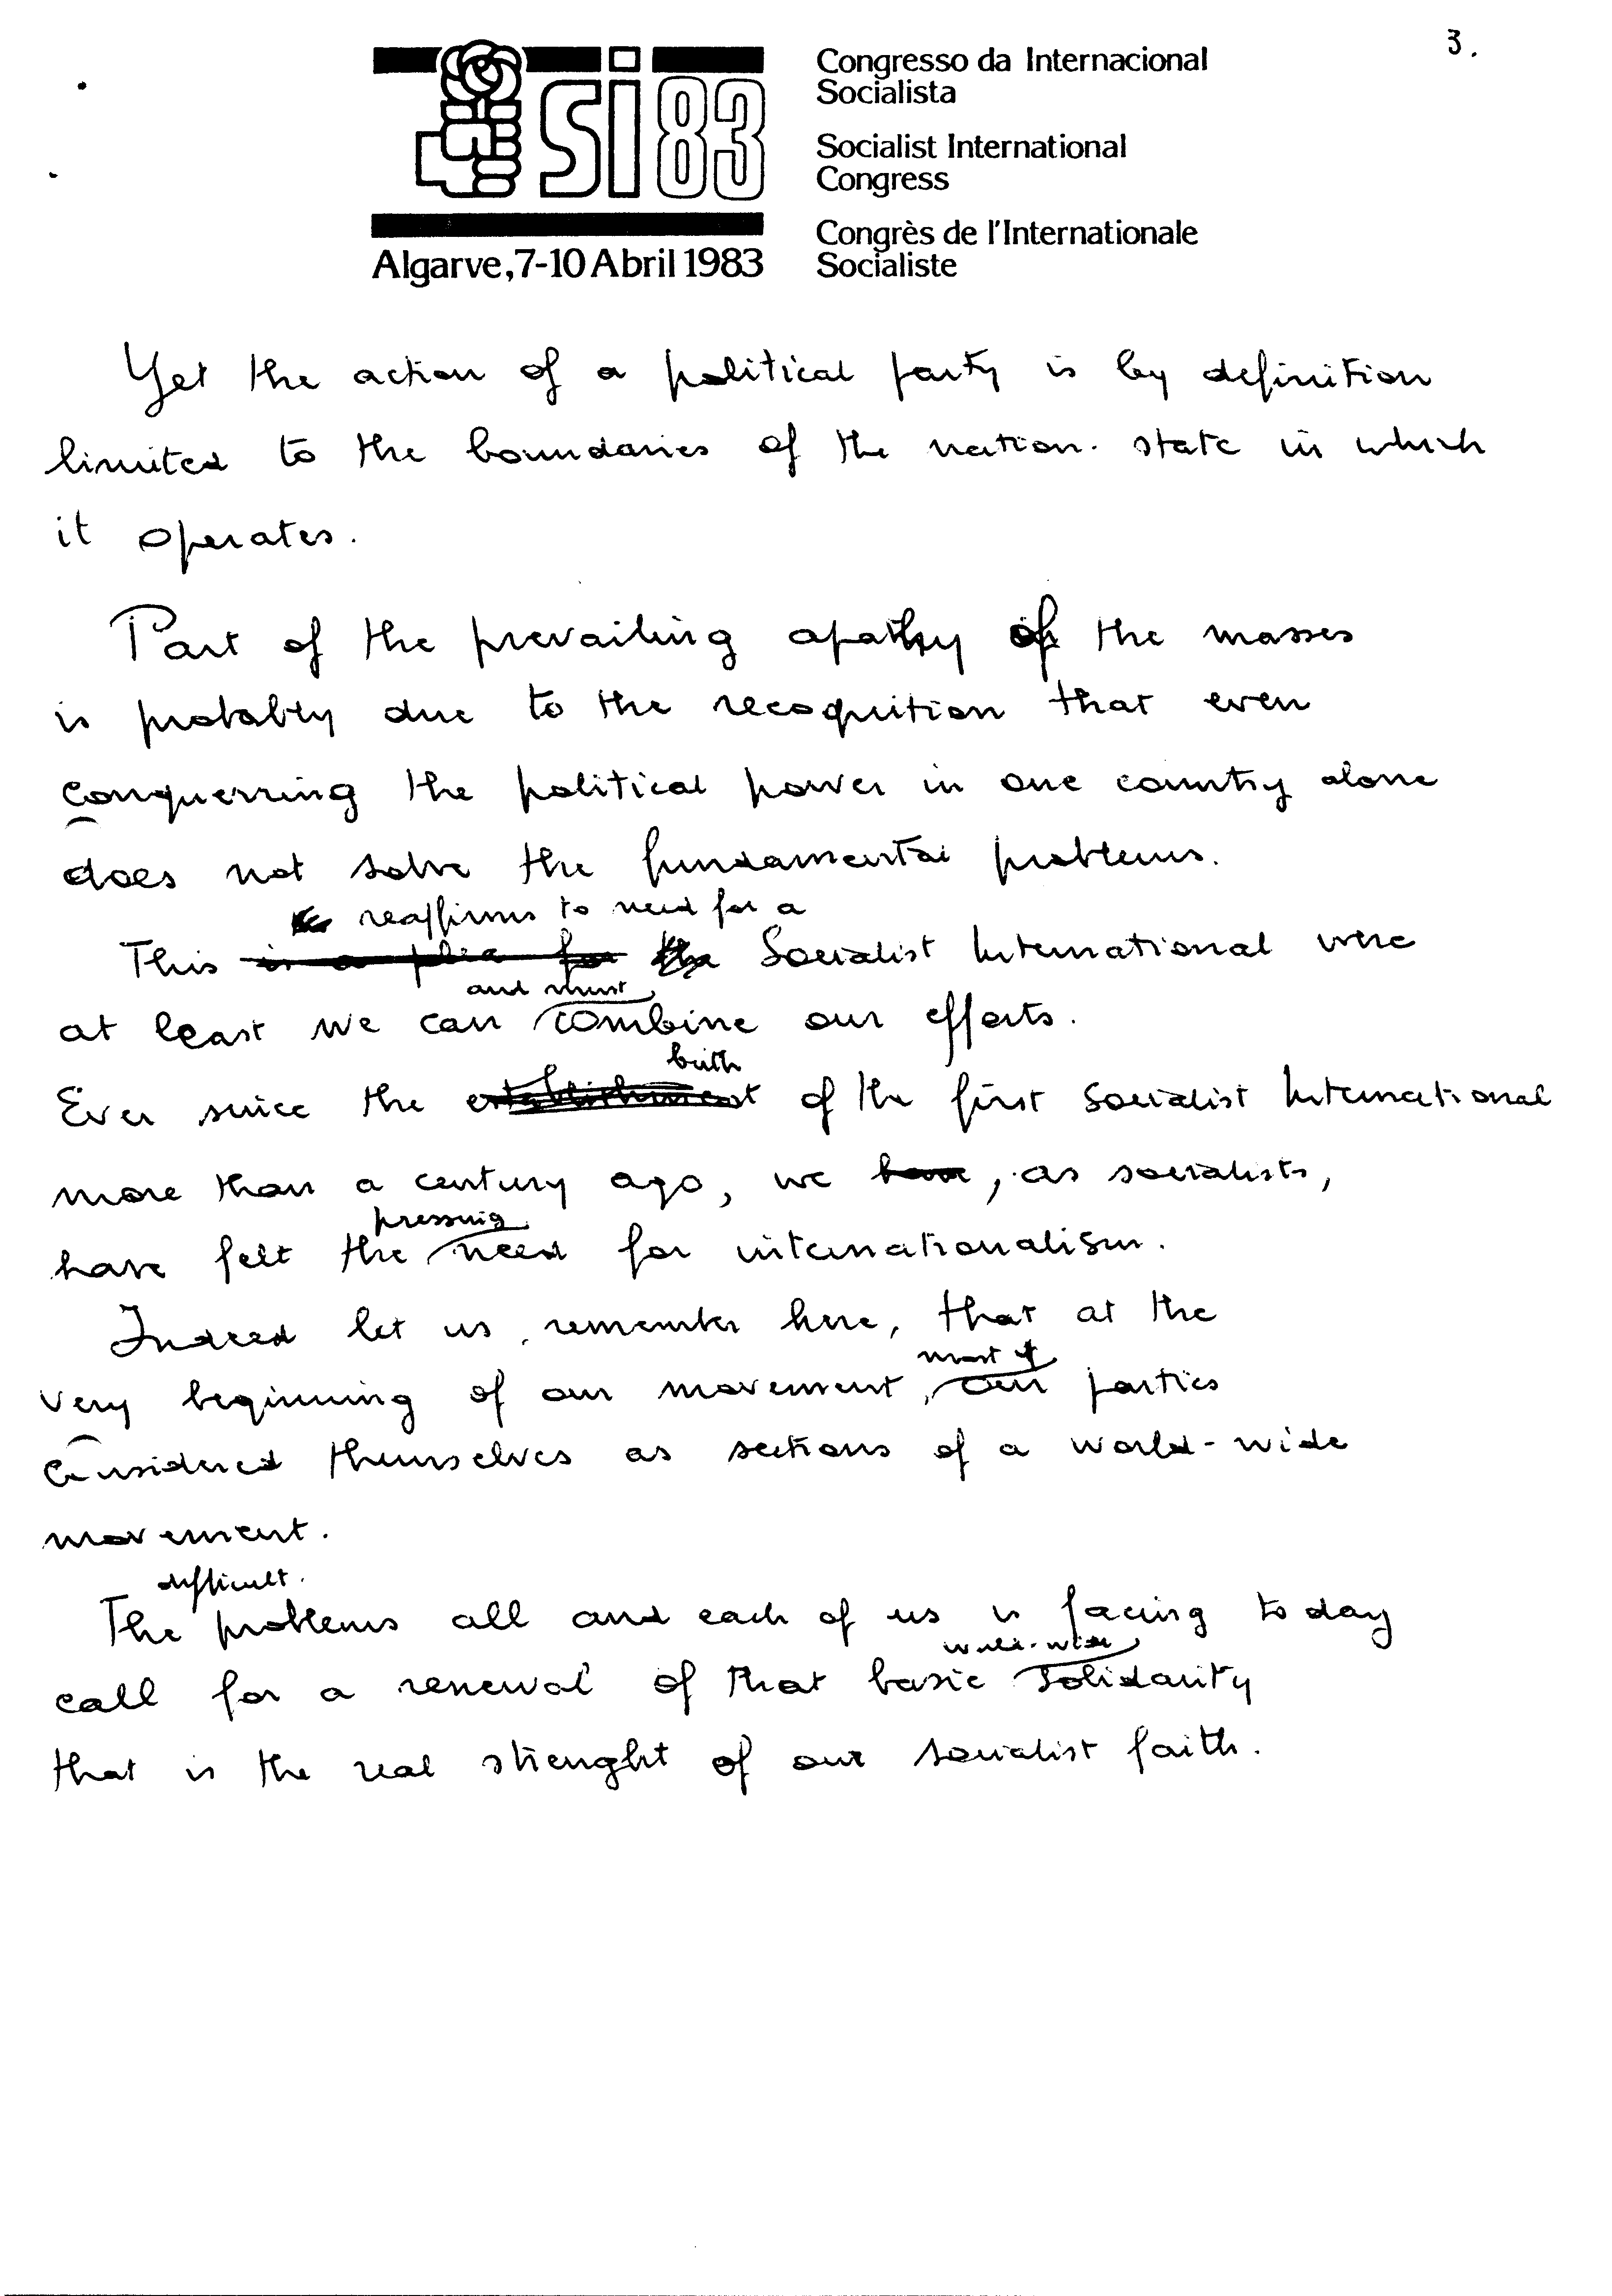 3.
SI 83
Algarve, 7-10 Abril 1983
Congresso da Internacional
Socialista
Socialist International
Congress
Congrès de l'Internationale
Socialiste
Yet the action of a political party is by definition
limited to the boundaries of the nation. state in which
it operates.
Part of the prevailing apathy of the masses
is probably due to the recognition that even
conquerring the political power in one country alone
does not solve the fundamental problems.
reaffirms to need for a
This is a plea for the Socialist International were
and must
at least we can combine our efforts.
birth
Ever since the establishment of the first Socialist International
more than a century ago, we have, as socialists,
pressing
have felt the need for internationalism.
Indeed let us remember here, that at the
most of
very beginning of our movement, our parties
considered themselves as sections of a world-wide
movement.
difficult
The problems all and each of us is facing today
world-wide
call for a renewal of that basic solidarity
that is the real strenght of our socialist faith.